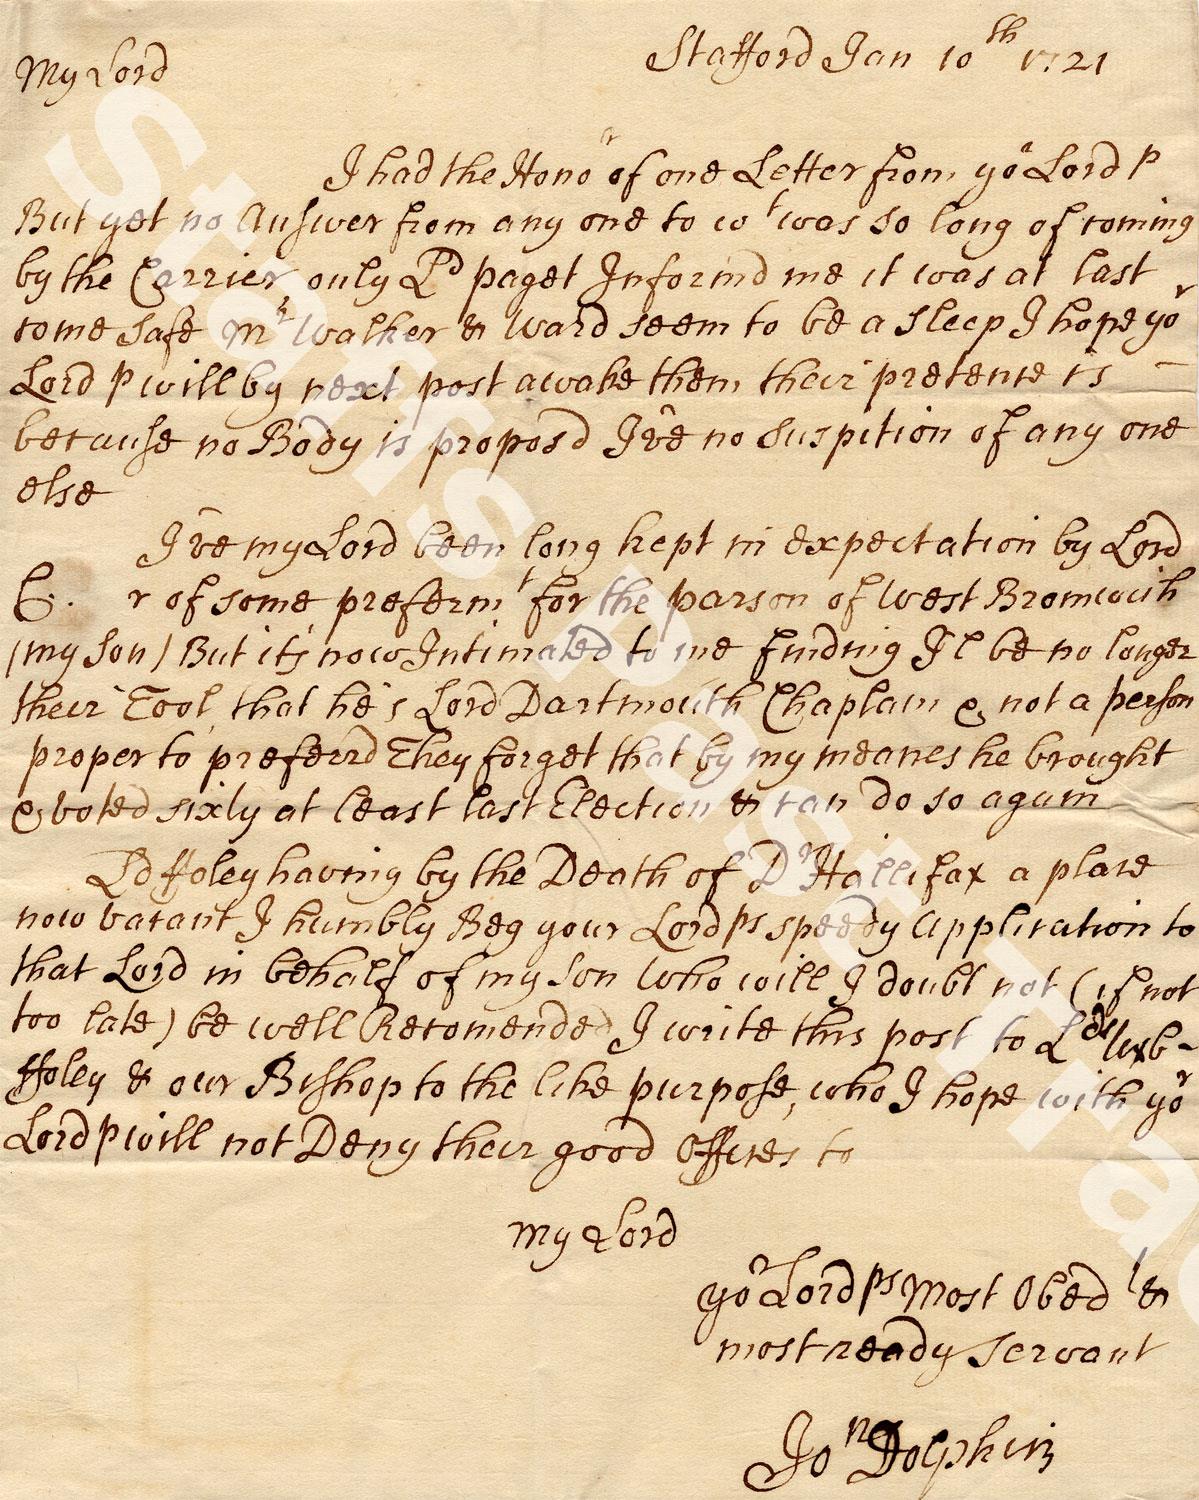 My Lord
Stafford Jan 10th 1721
I had the Honor of one Letter from yor Lordp
But yet no Answer from any one to wt was so long of coming
by the Carrier only Ld paget Informd me it was at last
come safe Mr Walker & Ward seem to be a sleep I hope yor
Lordp will by next post awake them their pretence is
because no Body is proposd I've no suspition of any one
else
I've my Lord been long kept in expectation by Lord
r of some preferm't for the parson of West Bromwich
(my Son) But its now Intimated to me finding I'l be no longer
their Tool that he's Lord Dartmouth Chaplain & not a person
proper to preferrd They forget that by my meanes he brought
& voted sixty at least last Election & can do so again
Ld ffoley having by the Death of Dr Hallifax a place
now vacant I humbly Beg your Lordps speedy Application to
that Lord in behalf of my Son who will I doubt not (if not
too late) be well Recomended I write this post to Lds Uxb-
ffoley & our Bishop to the like purpose, who I hope with yor
Lordp will not Deny their good Offices to
My Lord
yor Lordps Most Obedt &
most ready Servant
Jon Dolphin
Staffs Past Trac